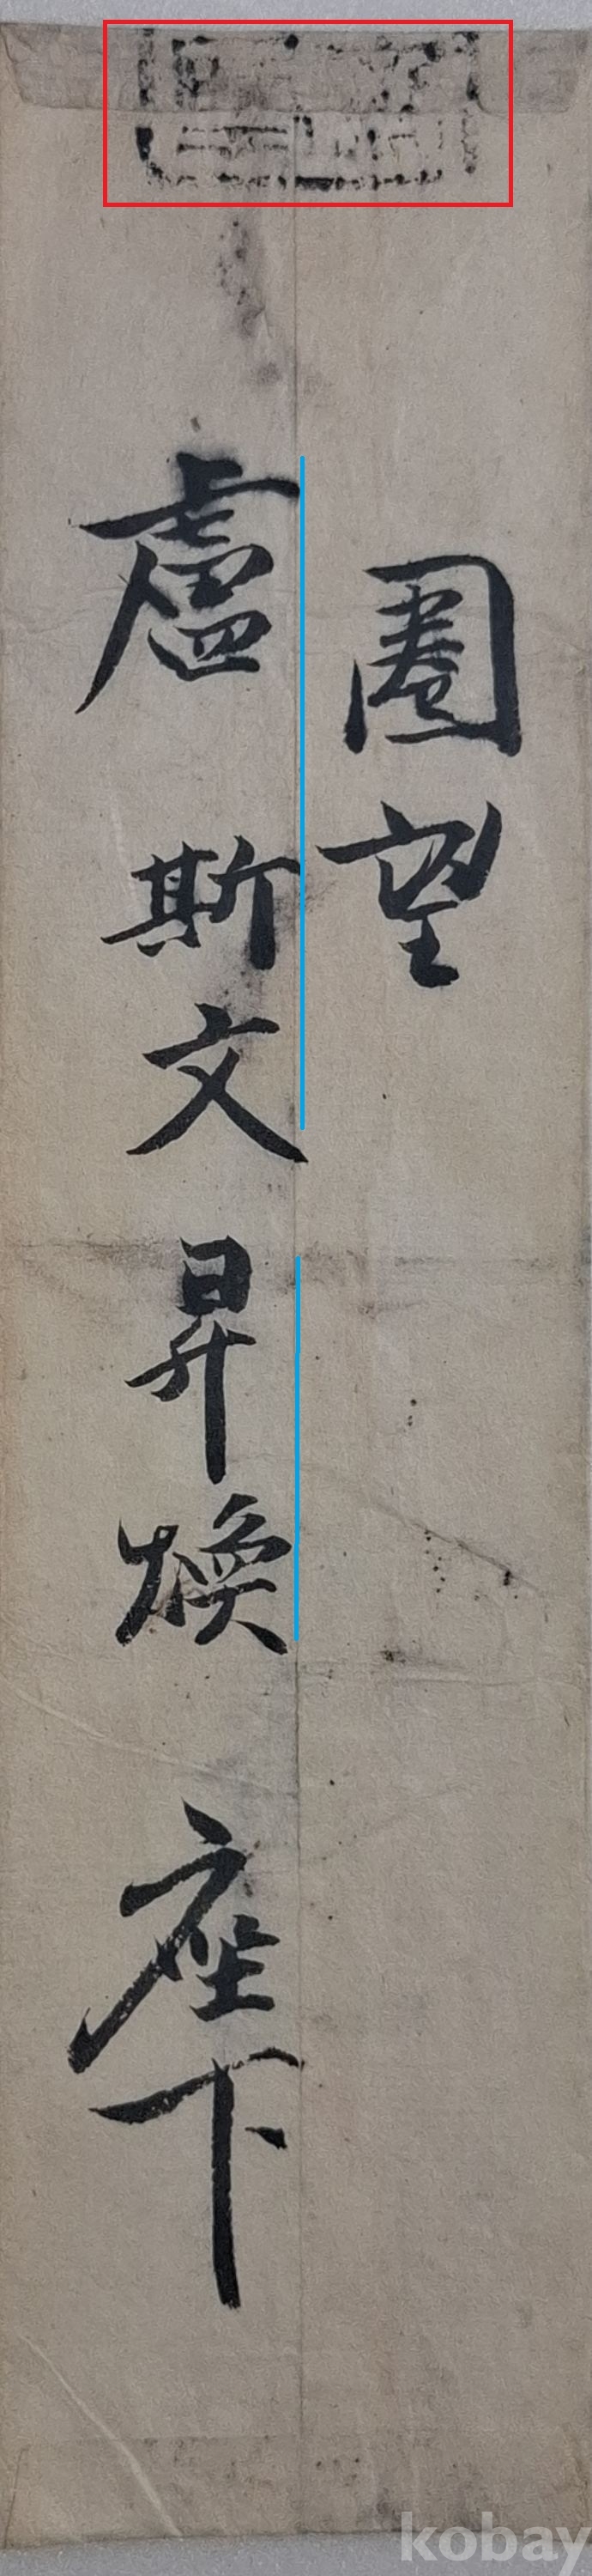 圈望
盧斯文昇煥座下
kobay